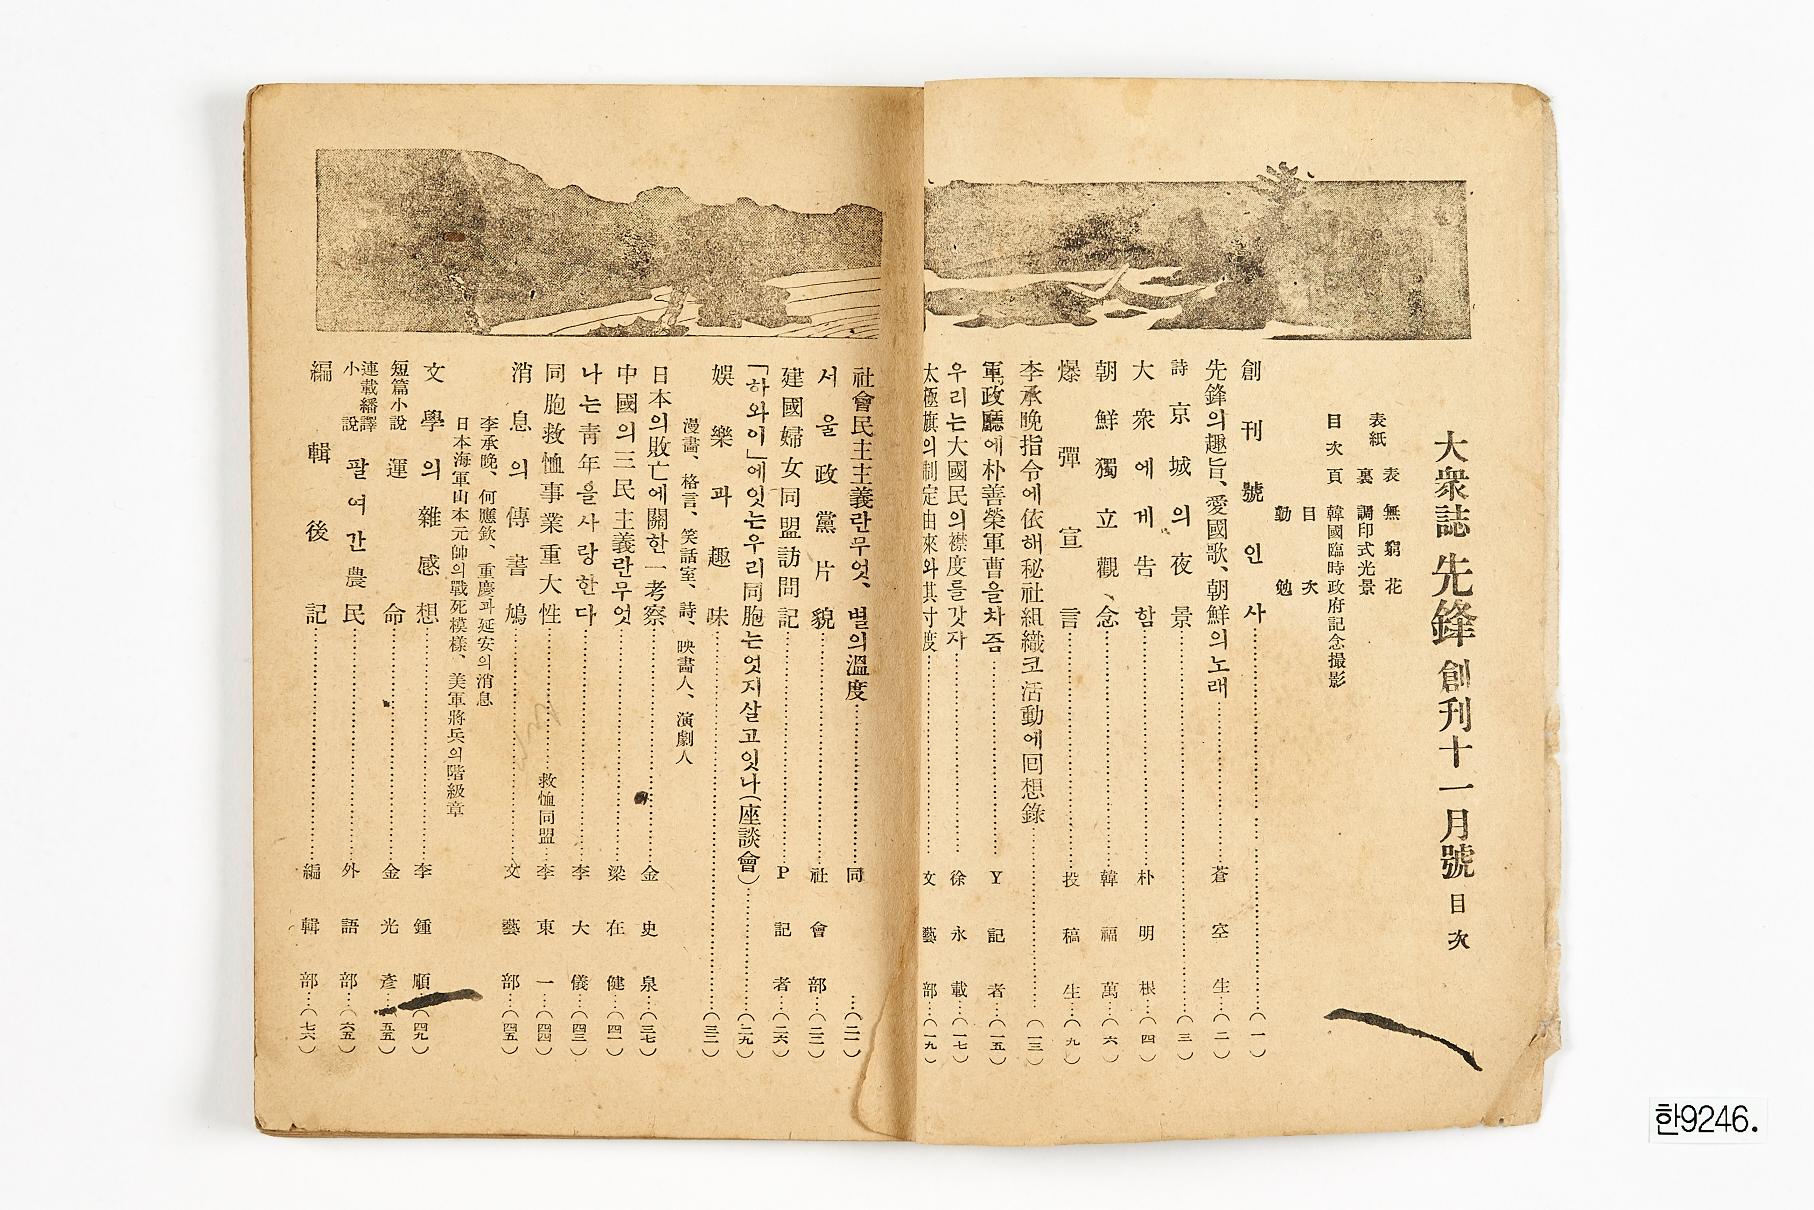 大衆誌 先鋒 創刊十一月號 目次
表紙 表 無窮花
裏 調印式光景
目次 頁 韓國臨時政府記念撮影
目次
動勉
創刊號인사……(一)
先鋒의趣旨、愛國歌、朝鮮의노래……蒼空生…(二)
詩 京城의夜景……(三)
大衆에게告함……朴明根…(四)
朝鮮獨立觀念……韓福萬…(六)
爆彈宣言……投稿生…(九)
李承晩指令에依해秘社組織코活動에回想錄……(一三)
軍政廳에朴善榮軍曹을차즘……Y記者…(一五)
우리는大國民의襟度를갓자……徐永載…(一七)
太極旗의制定由來와其寸度……文藝部…(一九)
社會民主主義란무엇、별의溫度……同…(二一)
서울政黨片貌……社會部…(二二)
建國婦女同盟訪問記……P記者…(二六)
「하와이」에잇는우리同胞는엇지살고잇나(座談會)……(二九)
娛樂과趣味……(三二)
漫畵、格言、笑話室、詩、映畵人、演劇人
日本의敗亡에關한一考察……金史泉…(三七)
中國의三民主義란무엇……梁在健…(四一)
나는靑年을사랑한다……李大儀…(四三)
同胞救恤事業重大性……救恤同盟…李東一…(四四)
消息의傳書鳩……文藝部…(四五)
李承晩、何應欽、重慶과延安의消息
日本海軍山本元帥의戰死模樣、美軍將兵의階級章
文學의雜感想……李鍾順…(四九)
短篇小說 運命……金光彥…(五五)
連載繙譯小說 팔여간農民……外語部…(六五)
編輯後記……編輯部…(七六)
한9246.